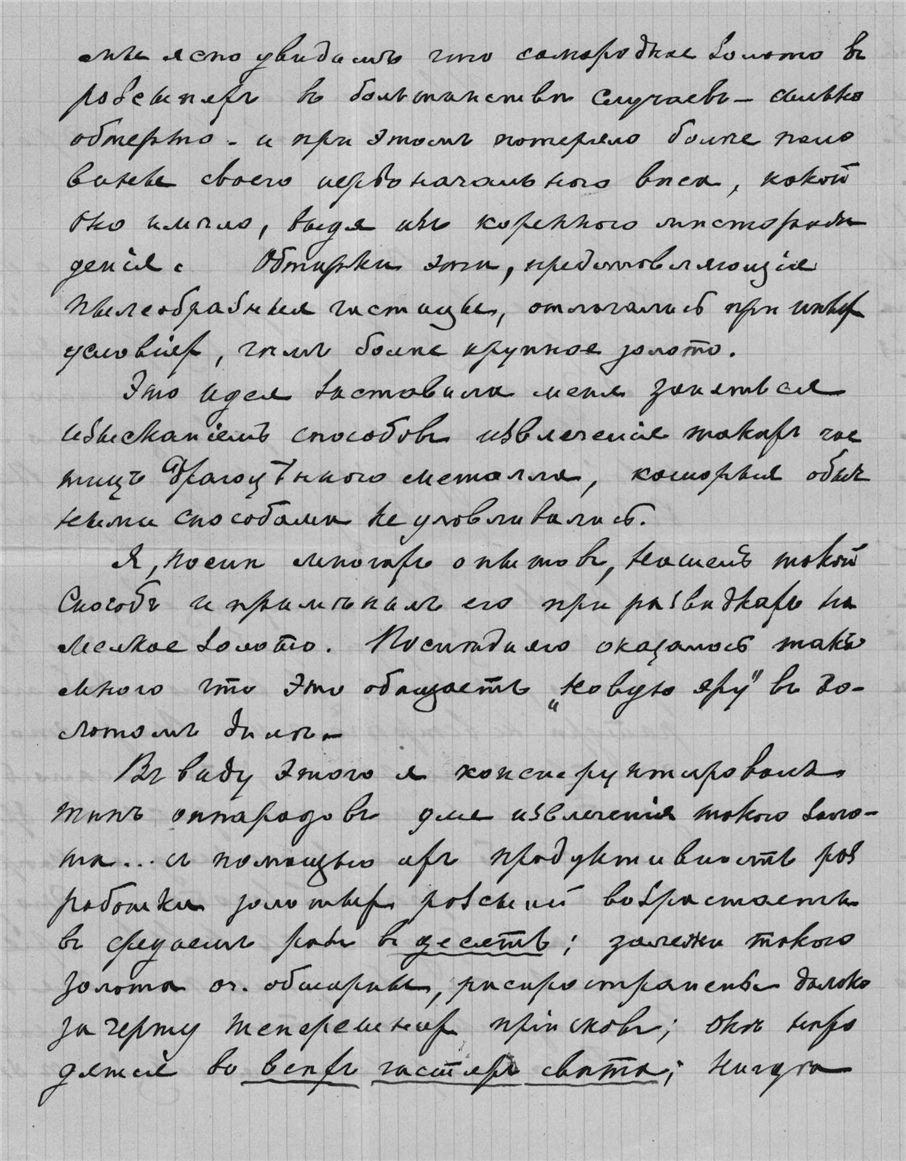 мы ясно увидимъ что самородное золото въ
розсыпяхъ въ большинстве случаевъ – сильно
обтерто – и при этомъ потеряло более поло
вины своего первоначальнаго веса, какой
оно имело, выйдя изъ кореннаго месторож
денія. Обтирки эти, представляющія
пылеобразныя частицы, отлагались при иныхъ
условіях, чемъ более крупное золото.
Эта идея заставила меня заняться
изысканіемъ способовъ извлеченія такихъ час
тицъ драгоценнаго металла, которыя обыч
ными способами не уловливались.
Я, после многихъ опытовъ, нашелъ такой
способъ и применилъ его при разведкахъ на
мелкое золото. Последняго оказалось такъ
много что это обещаетъ „новую эру" въ зо-
лотомъ деле.
Въ виду этого я конструктировалъ
типъ аппаратовъ для извлеченія такого золо-
та... съ помощью ихъ продуктивность раз
работки золотых розсыпей возрастаетъ
въ среднемъ разъ въ десять; залежи такого
золота оч. обширны, распространены далеко
за черту теперешних пріисковъ; они нахо
дятся во всехъ частяхъ света; нигде